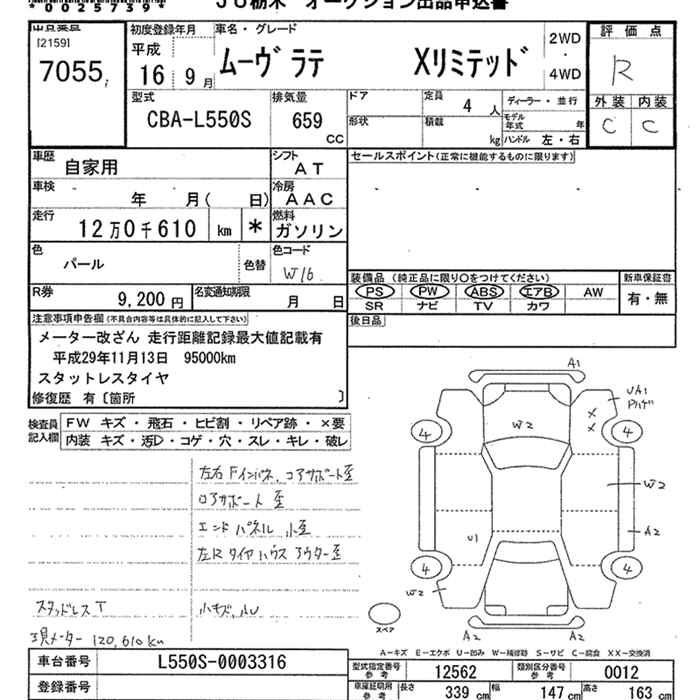 *0025739*
JU栃木 オークション出品申込書
出品番号
[2159]
7055
初度登録年月
平成
16 9月
車名・グレード
ムーヴ ラテ Xリミテッド
2WD
・
4WD
評価点
R
外装 内装
C C
型式
CBA-L550S
排気量
659 CC
ドア
形状
定員 4 人
積載 kg
ディーラー・並行
モデル年式 年
ハンドル 左・右
車歴
自家用
シフト
AT
セールスポイント(正常に機能するものに限ります)
車検
年 月( 日)
冷房
AAC
走行
12万0千610 km *
燃料
ガソリン
色
パール
色替
色コード
W16
装備品 (純正品に限り○をつけてください)
PS PW ABS エアB AW
SR ナビ TV カワ
新車保証書
有・無
R券
9,200円
名変通知期限
月 日
後日品
注意事項申告欄(不具合内容等は具体的に記入して下さい)
メーター改ざん 走行距離記録最大値記載有
平成29年11月13日 95000km
スタットレスタイヤ
修復歴 有〔箇所 〕
検査員記入欄
FW キズ・飛石・ヒビ割・リペア跡・×要
内装 キズ・汚D・コゲ・穴・スレ・キレ・破レ
左右Fインパネ、コアサポート歪
ロアサポート歪
エンドパネル小歪
左Rタイヤハウスアウター歪
スタッドレスT
小キズ、小U
現メーター 120,610km
A1
UA1
Pハゲ
X
X
4
4
W2
W2
A2
U1
4
4
W2
A2
A2
スペア
A-キズ E-エクボ U-凹み W-補修跡 S-サビ C-腐食 XX-交換済
車台番号
L550S-0003316
登録番号
型式指定番号
参考
12562
類別区分番号
参考
0012
車庫証明用
参考
長さ 339 cm
幅 147 cm
高さ 163 cm